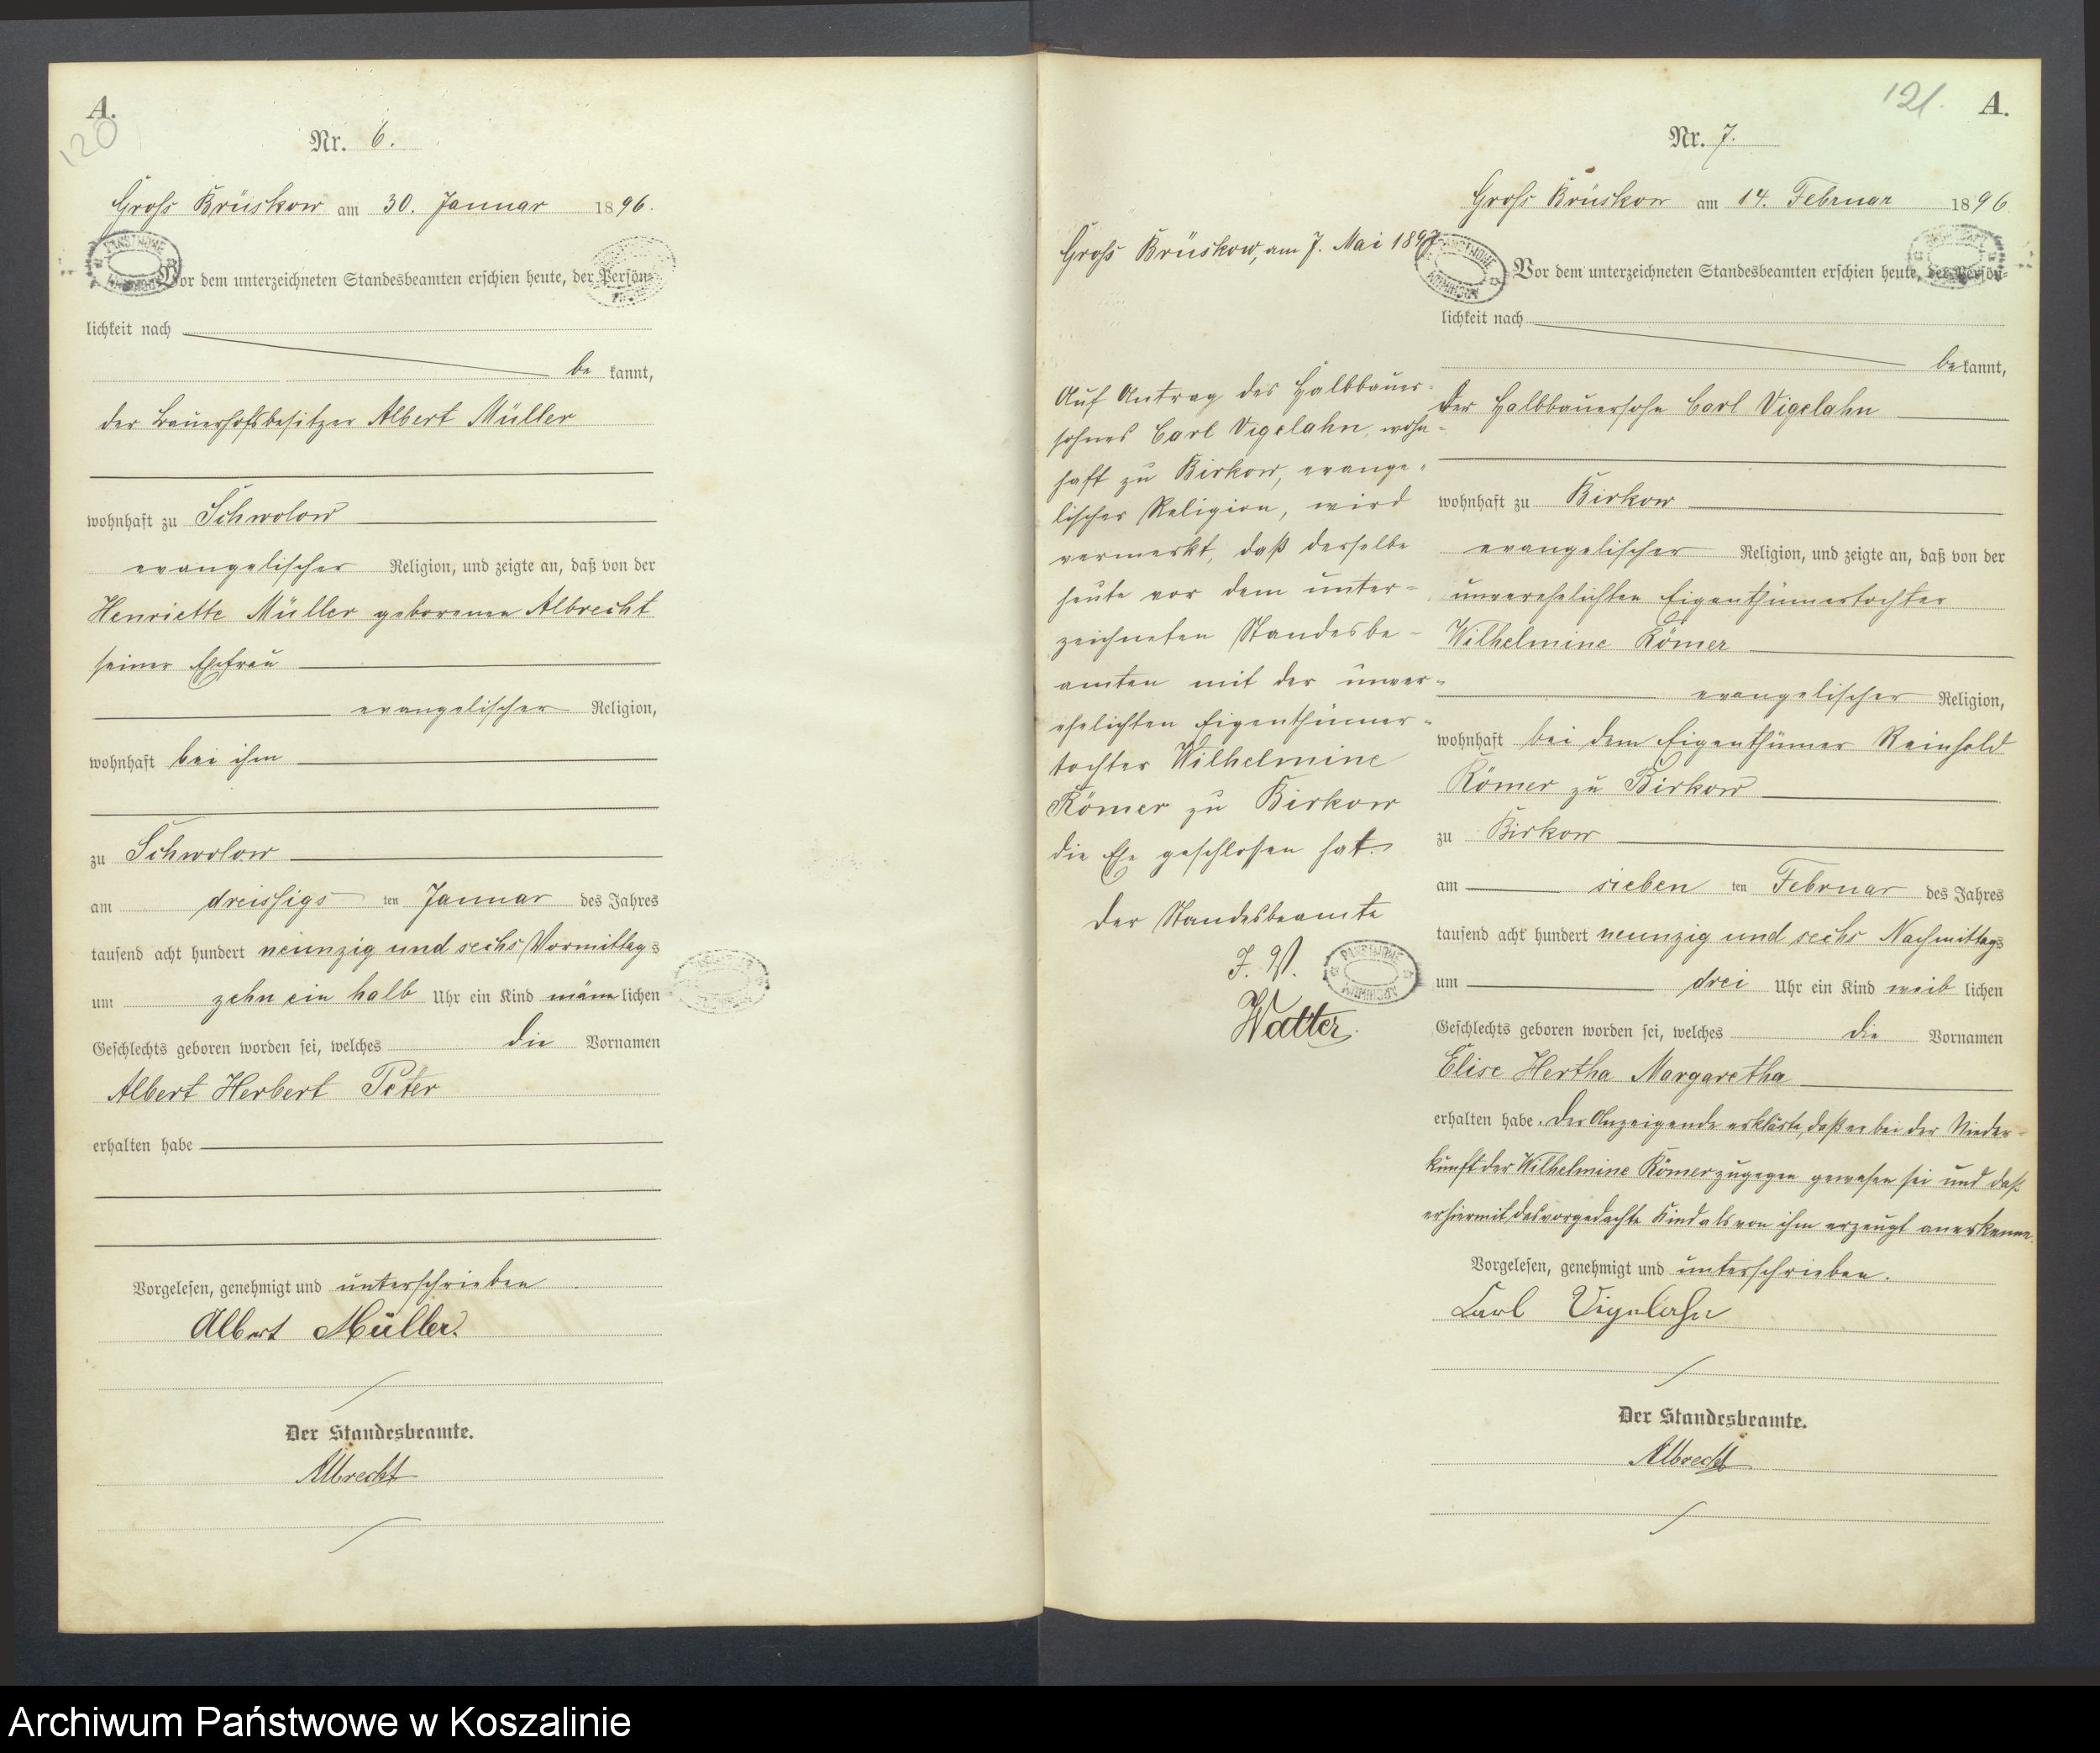 A.
120
Nr. 6.
Gross Brüskow am 30. Januar 1896.
Vor dem unterzeichneten Standesbeamten erschien heute, der Persön-
lichkeit nach
be kannt,
der Bauerhofsbesitzer Albert Müller
wohnhaft zu Schwolow
evangelischer Religion, und zeigte an, daß von der
Henriette Müller geborenen Albrecht
seiner Ehefrau
evangelischer Religion,
wohnhaft bei ihm
zu Schwolow
am dreissigs ten Januar des Jahres
tausend acht hundert neunzig und sechs Vormittags
um zehn ein halb Uhr ein Kind männlichen
Geschlechts geboren worden sei, welches die Vornamen
Albert Herbert Peter
erhalten habe
Vorgelesen, genehmigt und unterschrieben
Albert Müller.
Der Standesbeamte.
Albrecht
121. A.
Nr. 7.
Gross Brüskow am 14. Februar 1896
Vor dem unterzeichneten Standesbeamten erschien heute, der Persön-
lichkeit nach
bekannt,
der Halbbauersohn Carl Vigelahn
wohnhaft zu Birkow
evangelischer Religion, und zeigte an, daß von der
unverehelichten Eigenthümertochter
Wilhelmine Römer
evangelischer Religion,
wohnhaft bei dem Eigenthümer Reinhold
Römer zu Birkow
zu Birkow
am sieben ten Februar des Jahres
tausend acht hundert neunzig und sechs Nachmittags
um drei Uhr ein Kind weib lichen
Geschlechts geboren worden sei, welches die Vornamen
Elise Hertha Margaretha
erhalten habe. Der Anzeigende erklärte, daß er bei der Nieder-
kunft der Wilhelmine Römer zugegen gewesen sei und daß
er hiermit das vorgedachte Kind als von ihm erzeugt anerkenne.
Vorgelesen, genehmigt und unterschrieben.
Carl Vigelahn
Der Standesbeamte.
Albrecht
Gross Brüskow, am 7. Mai 1897
Auf Antrag des Halbbauer-
sohnes Carl Vigelahn, wohn-
haft zu Birkow, evange-
lischer Religion, wird
vermerkt, daß derselbe
heute vor dem unter-
zeichneten Standesbe-
amten mit der unver-
ehelichten Eigenthümer-
tochter Wilhelmine
Römer zu Birkow
die Ehe geschlossen hat.
Der Standesbeamte
J. V.
Watter.
PAŃSTWOWE ARCHIWUM
Archiwum Państwowe w Koszalinie